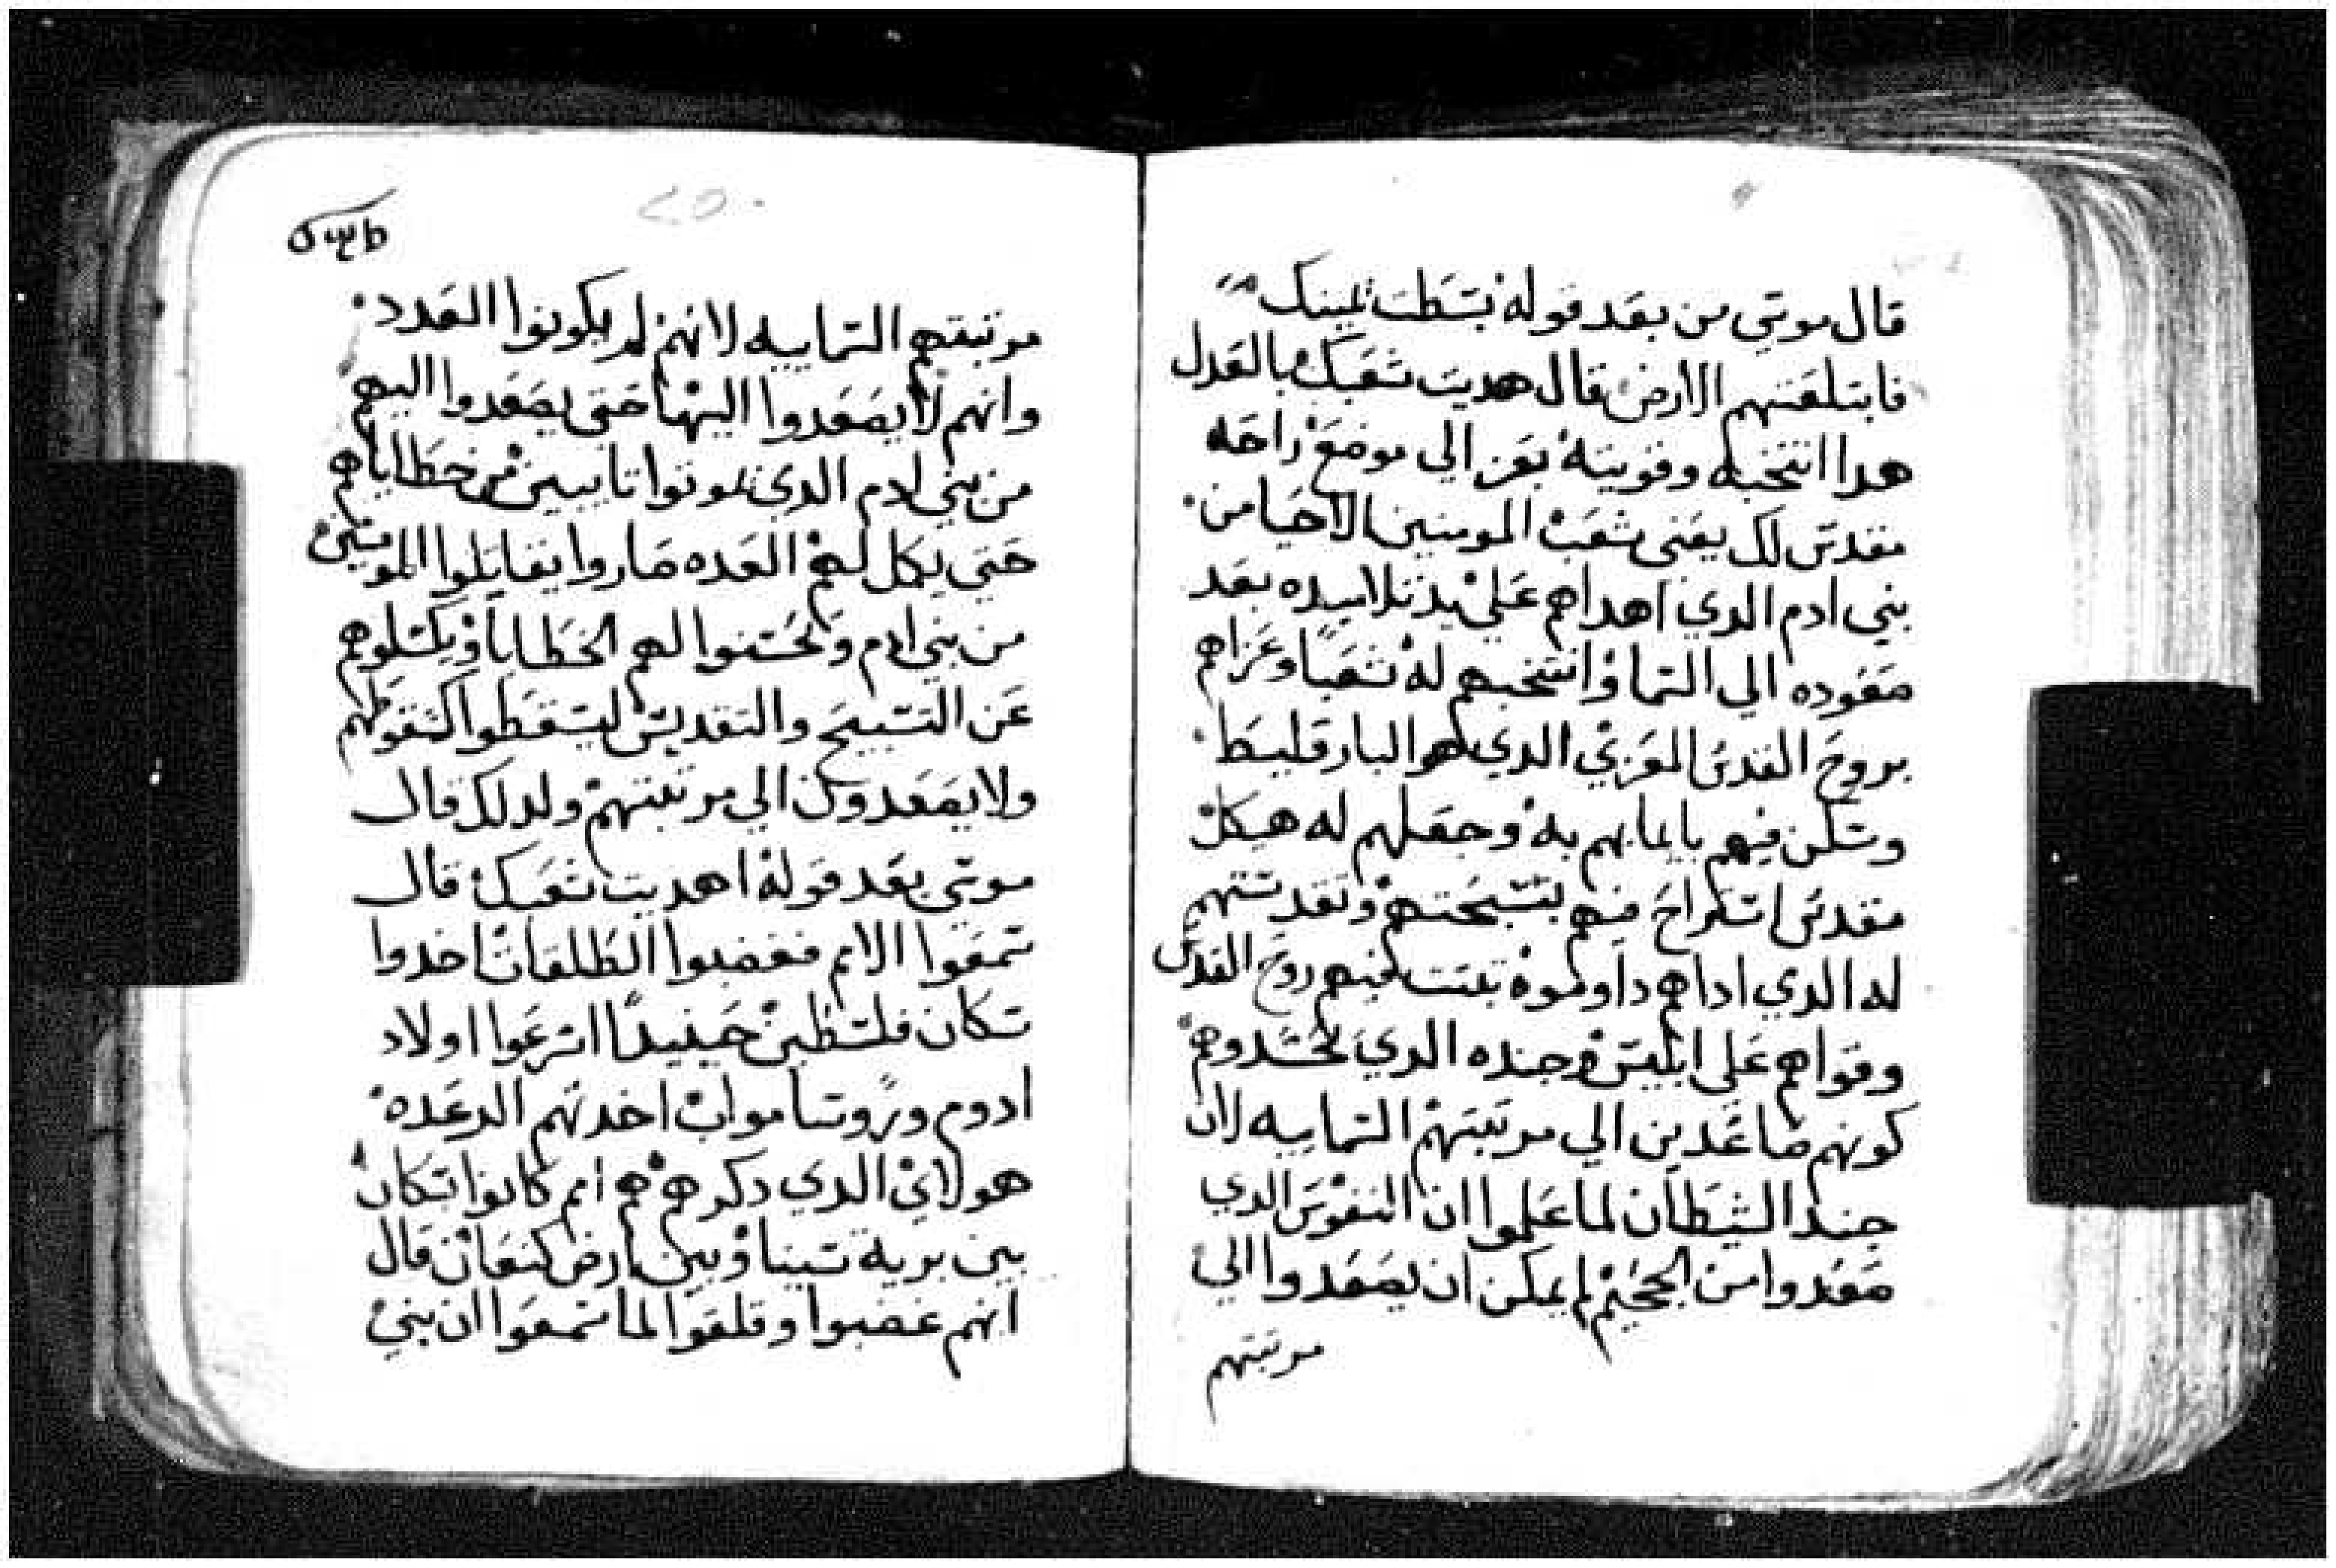 قال موسي من بعد قوله بسطت يمينك
فابتلعتهم الارض قال هديت شعبك بالعدل
هدا انتخبته وقويته بعز الي موضع راحه
مقدس لك يعني شعب المومنين الاحيا من
بني ادم الدي اهداهم علي يد تلاميده بعد
صعوده الي السما وانتخبهم له شعبا وعزاهم
بروح القدس المعزي الدي هو البارقليط
وسكن فيهم بايمانهم به وجعلهم له هيكل
مقدس استراح فيهم بتسبحتهم وتقدستهم
له الدي اداهم داوموه تبتت فيهم روح القدس
وقواهم علي ابليس وجنده الدي يحسدوهم
كونهم صاعدين الي مرتبتهم السماييه لان
جند الشيطان لما علموا ان النفوس الدي
صعدوا من الجحيم لم يمكن ان يصعدوا الي
مرتبتهم
٢٥٠
مرتبتهم السماييه لانهم لم يكونوا العدد
وانهم لا يصعدوا اليها حتي يصعدوا اليهم
من بني ادم الدي يموتوا تايبين من خطاياهم
حتي يكمل لهم العده صاروا يقاتلوا المومنين
من بني ادم ويحسنوا لهم الخطايا ويكسلوهم
عن التسبيح والتقديس ليسقطوا كسقوطهم
ولا يصعدون الي مرتبتهم ولدلك قال
موسي بعد قوله اهديت شعبك قال
سمعوا الامم فغضبوا الطلقات اخدوا
سكان فلسطين حينيدا اسرعوا اولاد
ادوم وروسا مواب اخدتهم الرعده
هولاي الدي دكرهم هم امم كانوا سكان
بين برية سينا وبين ارض كنعان قال
انهم غضبوا وقلقوا لما سمعوا ان بني